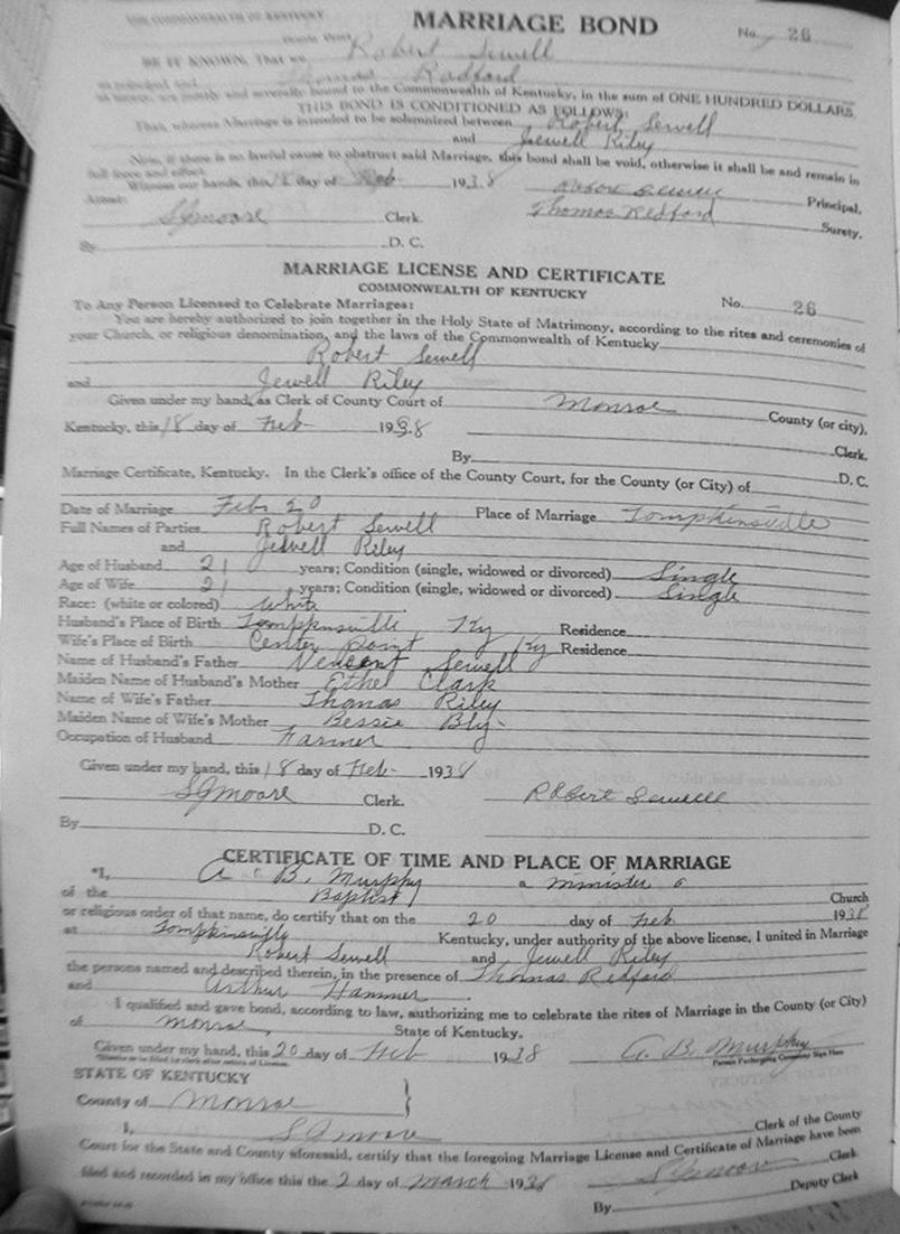 THE COMMONWEALTH OF KENTUCKY
MARRIAGE BOND
No. 26
BE IT KNOWN, That we Robert Sewell
as principal and Redford
as surety, are jointly and severally bound to the Commonwealth of Kentucky, in the sum of ONE HUNDRED DOLLARS.
THIS BOND IS CONDITIONED AS FOLLOWS:
That, whereas Marriage is intended to be solemnized between Robert Sewell
and Jewell Riley
Now, if there is no lawful cause to obstruct said Marriage, this bond shall be void, otherwise it shall be and remain in
full force and effect.
Witness our hands, this day of Feb 1938 Robert Sewell Principal.
Attest:
S G Moore Clerk. Thomas Redford Surety.
By D. C.
MARRIAGE LICENSE AND CERTIFICATE
COMMONWEALTH OF KENTUCKY
To Any Person Licensed to Celebrate Marriages: No. 26
You are hereby authorized to join together in the Holy State of Matrimony, according to the rites and ceremonies of
your Church, or religious denomination, and the laws of the Commonwealth of Kentucky
Robert Sewell
and Jewell Riley
Given under my hand, as Clerk of County Court of Monroe County (or city),
Kentucky, this 18 day of Feb 1938 Clerk.
By D. C.
Marriage Certificate, Kentucky. In the Clerk's office of the County Court, for the County (or City) of
Date of Marriage Feb 20 Place of Marriage Tompkinsville
Full Names of Parties Robert Sewell
and Jewell Riley
Age of Husband 21 years; Condition (single, widowed or divorced) Single
Age of Wife 21 years; Condition (single, widowed or divorced) Single
Race: (white or colored) White
Husband's Place of Birth Tompkinsville Ky Residence
Wife's Place of Birth Center Point Ky Residence
Name of Husband's Father Vencent Sewell
Maiden Name of Husband's Mother Ethel Clark
Name of Wife's Father Thomas Riley
Maiden Name of Wife's Mother Bessie Bly
Occupation of Husband Farmer
Given under my hand, this 18 day of Feb 1938
S G Moore Clerk. Robert Sewell
By D. C.
CERTIFICATE OF TIME AND PLACE OF MARRIAGE
*I, A. B. Murphy a minister
of the Baptist Church
or religious order of that name, do certify that on the 20 day of Feb 1938
at Tompkinsville Kentucky, under authority of the above license, I united in Marriage
Robert Sewell and Jewell Riley
the persons named and described therein, in the presence of Thomas Redford
and Arthur Hammer
I qualified and gave bond, according to law, authorizing me to celebrate the rites of Marriage in the County (or City)
of Monroe, State of Kentucky.
Given under my hand, this 20 day of Feb 1938 A. B. Murphy
Person Performing Ceremony Sign Here
STATE OF KENTUCKY
County of Monroe
I, S G Moore Clerk of the County
Court for the State and County aforesaid, certify that the foregoing Marriage License and Certificate of Marriage have been
filed and recorded in my office this the 2 day of March 1938 S G Moore Clerk
By Deputy Clerk